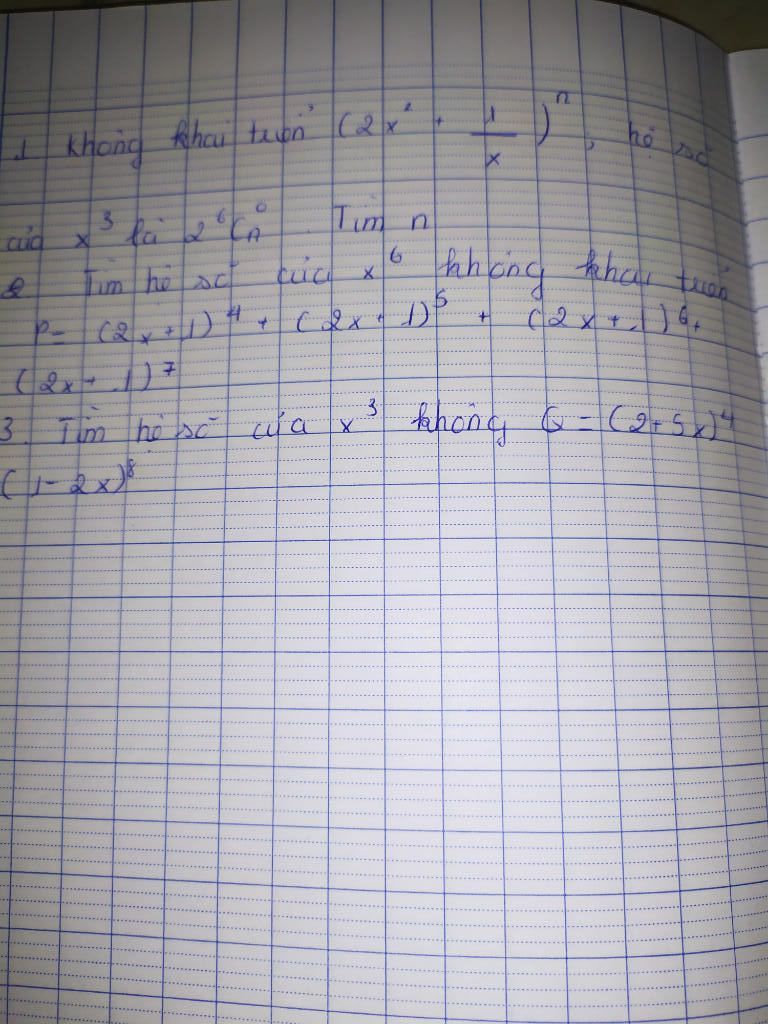 1 Không khai tuơn (2x² + 1/x)ⁿ, hệ số
của x³ là 2⁶Cₙ⁶. Tìm n
2 Tìm hệ số của x⁶ không khai tuơn
P= (2x+1)⁴ + (2x+1)⁵ + (2x+1)⁶+
(2x+1)⁷
3. Tìm hệ số của x³ không Q = (2+5x)⁴
(1-2x)⁸